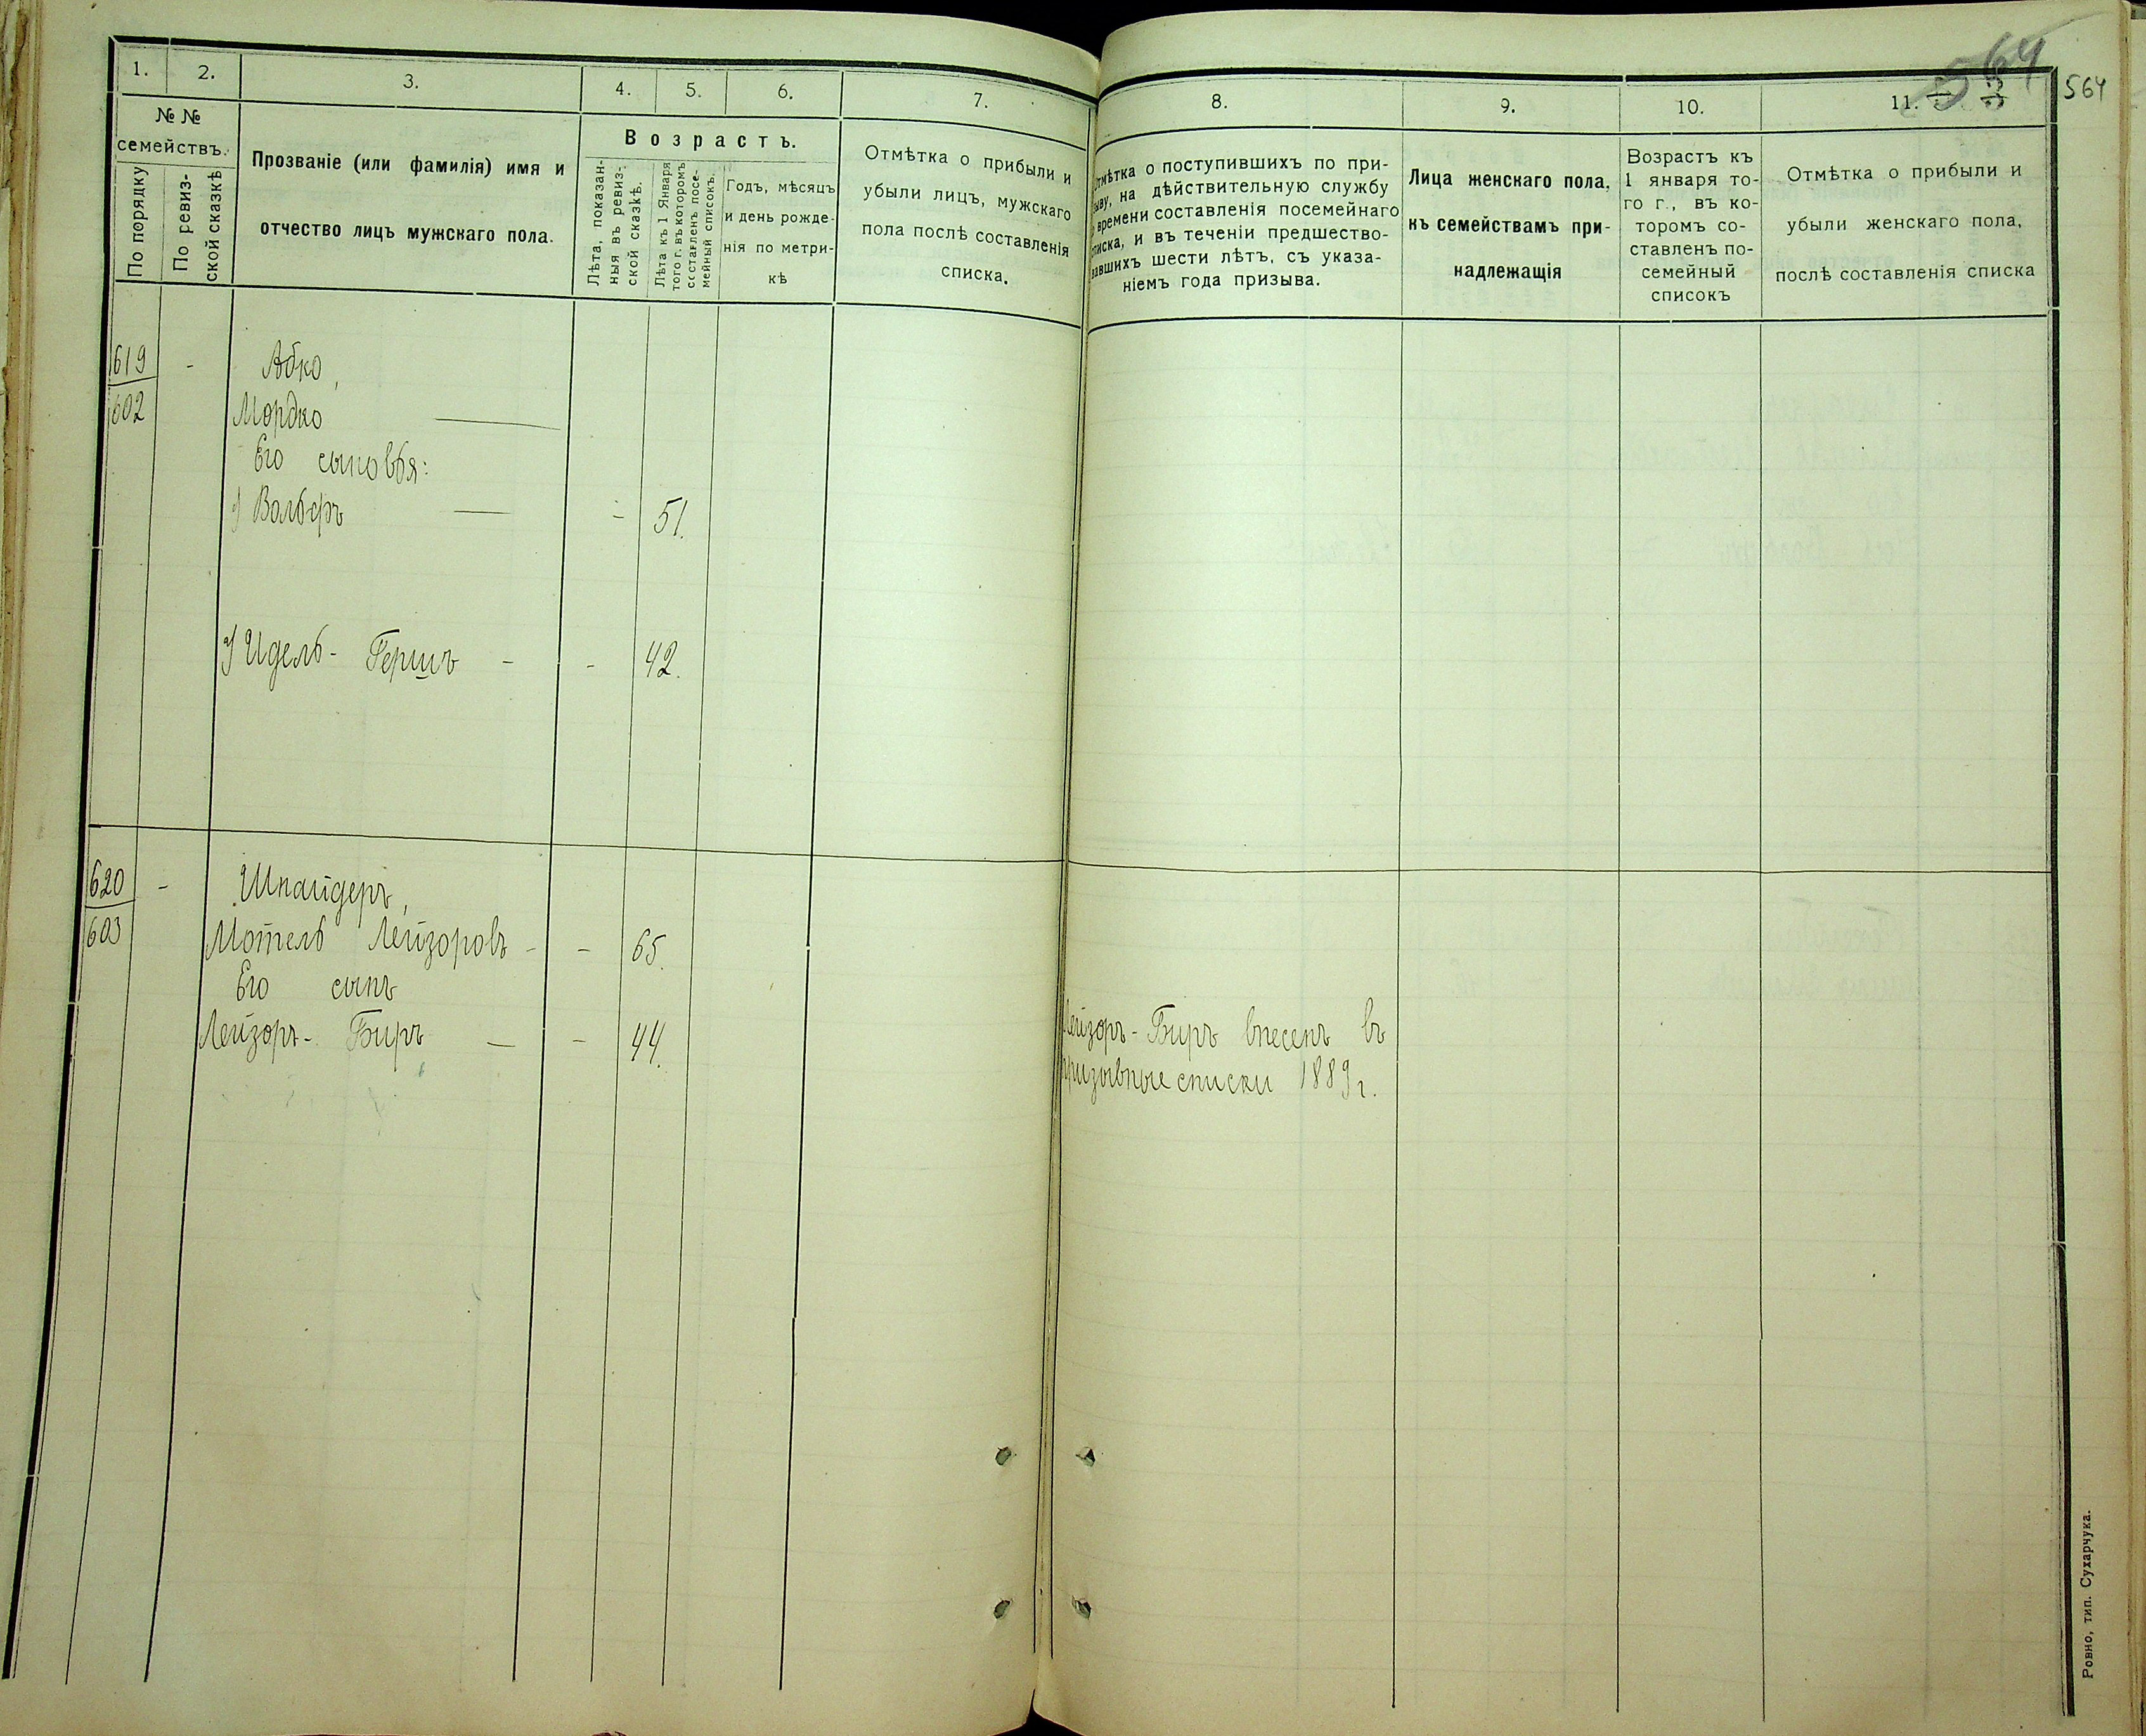 564
564
1.
2.
3.
4.
5.
6.
7.
8.
9.
10.
11.
№ №
семействъ.
По порядку
По ревиз-
ской сказкѣ
Прозваніе (или фамилія) имя и
отчество лицъ мужскаго пола.
Возрастъ.
Лѣта, показан-
ныя въ ревиз-
ской сказкѣ.
Лѣта къ 1 Января
того г. въ которомъ
составленъ посе-
мейный списокъ.
Годъ, мѣсяцъ
и день рожде-
нія по метри-
кѣ
Отмѣтка о прибыли и
убыли лицъ, мужскаго
пола послѣ составленія
списка.
Отмѣтка о поступившихъ по при-
зыву, на дѣйствительную службу
времени составленія посемейнаго
списка, и въ теченіи предшество-
вавшихъ шести лѣтъ, съ указа-
ніемъ года призыва.
Лица женскаго пола,
къ семействамъ при-
надлежащія
Возрастъ къ
1 января то-
го г., въ ко-
торомъ со-
ставленъ по-
семейный
списокъ
Отмѣтка о прибыли и
убыли женскаго пола,
послѣ составленія списка
619 - Абко,
602 Мордко —
Его сыновья:
Вольфъ — - 51.
Идель-Гершъ - - 42.
620 - Шнайдеръ,
603 Мотель Лейзоровъ - - 65.
Его сынъ
Лейзоръ-Биръ — - 44.
Лейзоръ-Биръ внесенъ въ
призывные списки 1889 г.
Ровно, тип. Сухарчука.